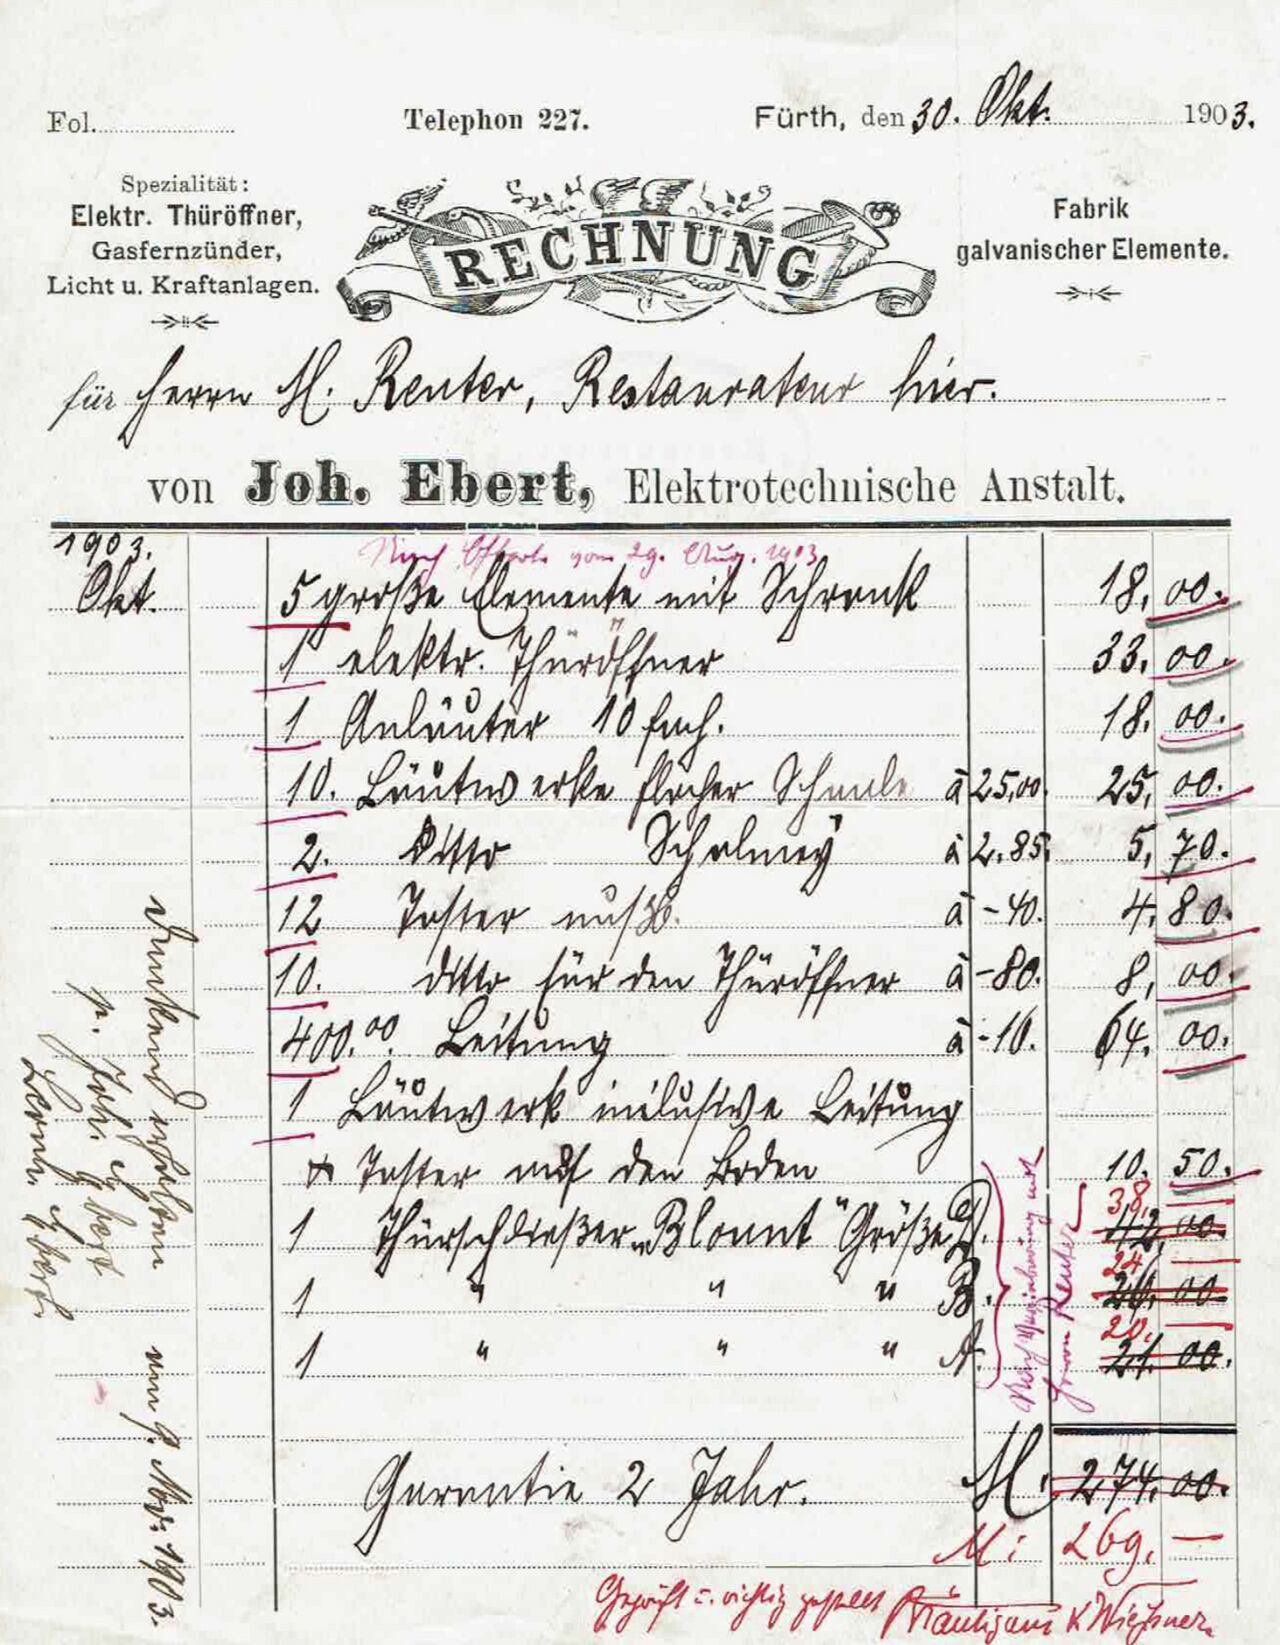 Fol.
Telephon 227.
Fürth, den 30. Okt. 1903.
Spezialität:
Elektr. Thüröffner,
Gasfernzünder,
Licht u. Kraftanlagen.
RECHNUNG
Fabrik
galvanischer Elemente.
für Herrn M. Reuter, Restaurateur hier.
von Joh. Ebert, Elektrotechnische Anstalt.
1903.
Nach Offert. vom 29. Aug. 1903
Okt. 5 große Elemente mit Schrank 18. 00.
1 elektr. Thüröffner 33. 00.
1 Anläuter 10 fach. 18. 00.
10. Läutwerke flacher Schale à 25,00. 25, 00.
2. ditto Schalmey à 2.85. 5, 70.
12 Taster à -40. 4. 80.
10. ditto für den Thüröffner à -80. 8, 00.
400.00. Leitung à -16. 64. 00.
1 Läutwerk inclusive Leitung
& Taster auf den Boden 10. 50.
38, —
1 Thürschließer „Blount" Größe D. 42, 00.
24, —
1 " " " B. 26. 00.
20, —
1 " " " A. 21. 00.
Nach Vereinbarung mit
Herrn Reuter
Garantie 2 Jahr. M. 274. 00.
M: 269. —
Geprüft u. richtig gestellt Bräutigam & Wießner.
dankend erhalten
p. Joh. Ebert
Bernh. Ebert.
am 9. Nov. 1903.